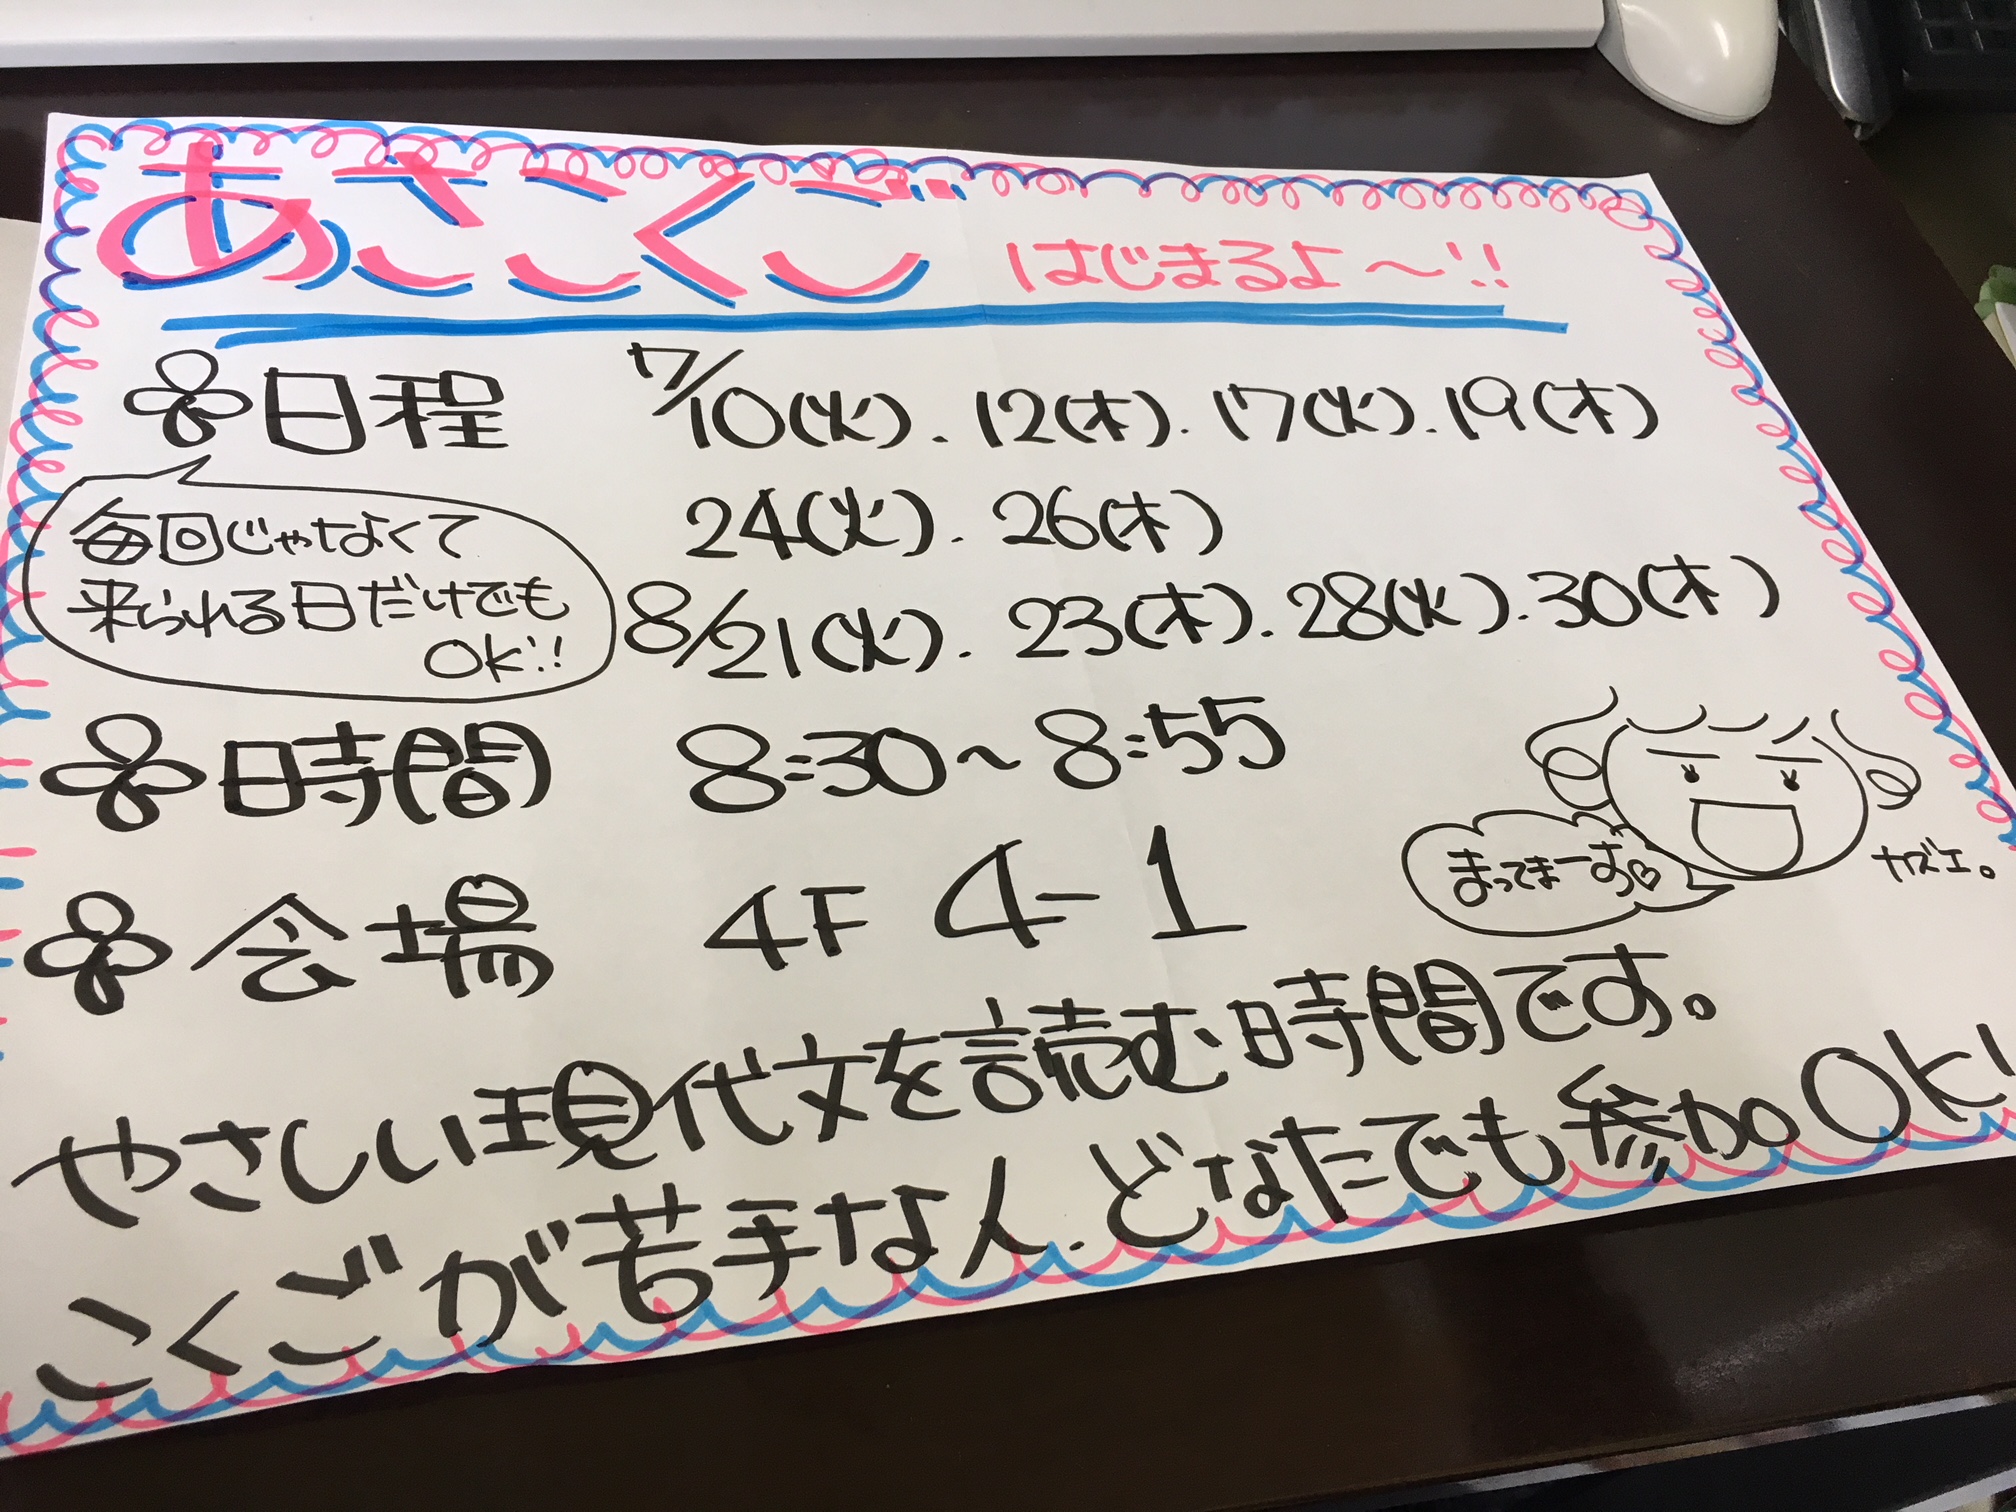 あさこくご はじまるよ〜!!
日程 7/10(火). 12(木). 17(火). 19(木)
24(火). 26(木)
8/21(火). 23(木). 28(火). 30(木)
毎回じゃなくて
来られる日だけでも
OK!!
時間 8:30〜8:55
会場 4F 4-1
まってまーす♡
カズエ。
やさしい現代文を読む時間です。
こくごが苦手な人、どなたでも参加OK!